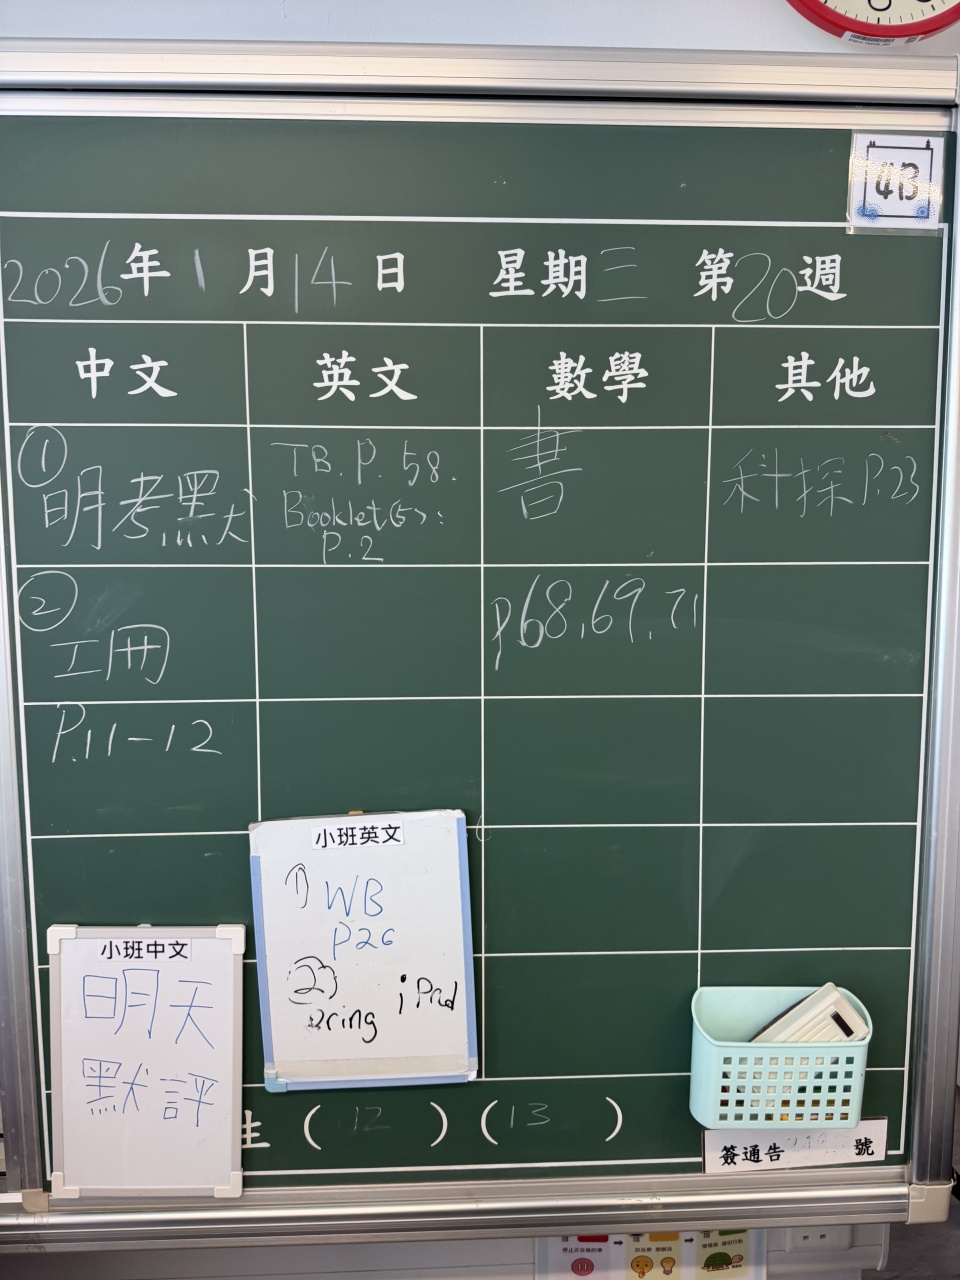 4B
2026年1月14日 星期三 第20週
中文 英文 數學 其他
①
明考默
TB. P. 58.
Booklet(5):
P.2
書
科探P.23
②
工冊
P.11-12
p68,69,71
小班英文
1)
WB
P26
2)
Bring iPad
小班中文
明天
默評
生 ( 12 ) ( 13 )
簽通告 號